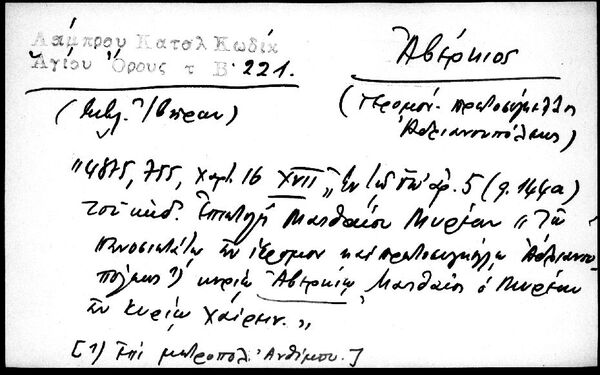 Λάμπρου Κατσλ Κωδίκ
Ἁγίου Ὄρους τ Β· 221.
Ἀβέρκιος
(Ἱερομόν. πρωτοσύγκελλος
Ἀδριανουπόλεως)
"4875, 755, Χαρτ. 16 XVII" Ἐν τῷ ὑπ' ἀρ. 5 (φ. 144α)
τοῦ κώδ. Ἐπιστολὴ Ματθαίου Μυρέων "Τῷ
πανοσιωτάτῳ ἐν ἱερομον καὶ πρωτοσυγκέλλῳ Ἀδριανου
πόλεως 1) κυρίῳ Ἀβερκίῳ Ματθαῖος ὁ Μυρέων
ἐν Κυρίῳ Χαίρειν."
[1) Ἐπὶ μητροπολ. Ἀνθίμου.]